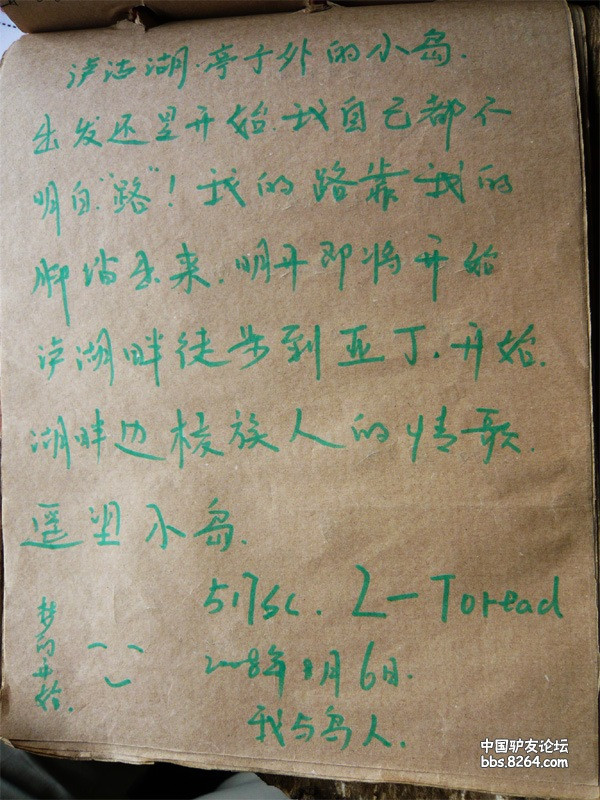 泸沽湖.亭子外的小岛.
出发还是开始.我自己都不
明白"路"!我的路靠我的
脚踏出来.明天即将开始
泸湖畔徒步到亚丁.开始.
湖畔边 族人的情歌.
遥望小岛.
517sc. L-Toread
2008年8月6日.
我与鸟人.
梦的开始.
中国驴友论坛
bbs.8264.com